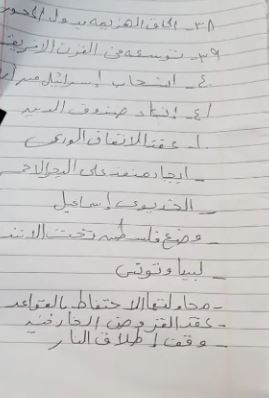 ٣٨- الحاق الهزيمة بدول المحور
٣٩- توسعه في القرن الافريقي
٤٠- انسحاب إسرائيل من
٤١- إنشاء صندوق الدين
١- عقد الاتفاق الودي
- ايجاد منفذ على البحر الاحمر
- الخديوي إسماعيل
- وضع فلسطين تحت الانتد
- ليبيا وتونس
- محاولتها الاحتفاظ بالقواعد
- عقد القروض الخارجية
- وقف إطلاق النار